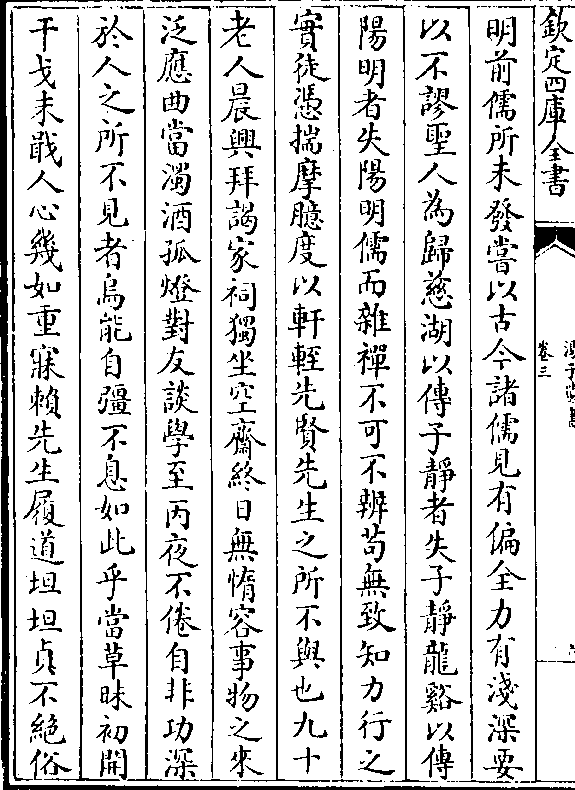 欽定四庫全書
卷三
明前儒所未發嘗以古今諸儒見有偏全力有淺深要
以不謬聖人為歸慈湖以傳子靜者失子靜龍谿以傳
陽明者失陽明儒而雜禪不可不辨茍無致知力行之
實徒憑揣摩臆度以軒輊先賢先生之所不與也九十
老人晨興拜謁家祠獨坐空齋終日無惰容事物之來
泛應曲當濁酒孤燈對友談學至丙夜不倦自非功深
於人之所不見者烏能自彊不息如此乎當草昧初開
干戈未戢人心幾如重寐賴先生履道坦坦貞不絕俗